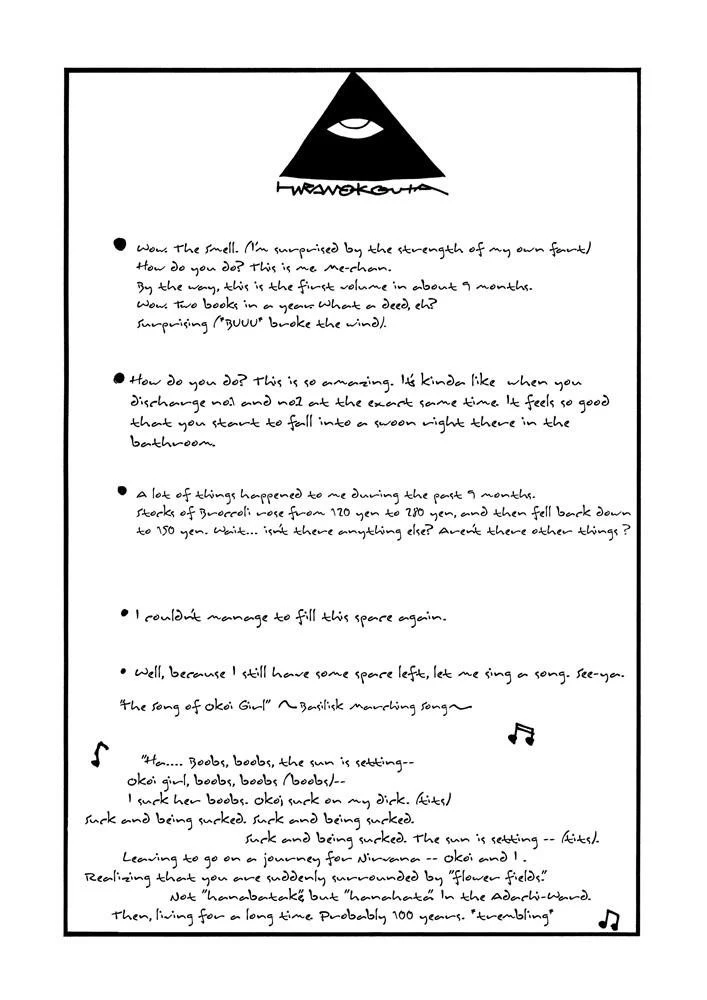 Wow. The smell. (I'm surprised by the strength of my own fart)
How do you do? This is me. Me-chan.
By the way, this is the first volume in about 9 months.
Wow. Two books in a year. What a deed, eh?
Surprising (*BUUU* broke the wind).
How do you do? This is so amazing. It's kinda like when you
discharge no.1 and no.2 at the exact same time. It feels so good
that you start to fall into a swoon right there in the
bathroom.
A lot of things happened to me during the past 9 months.
Stocks of Broccoli rose from 120 yen to 280 yen, and then fell back down
to 150 yen. Wait... isn't there anything else? Aren't there other things?
I couldn't manage to fill this space again.
Well, because I still have some space left, let me sing a song. See-ya.
"The Song of Okoi Girl" ~Basilisk Marching Song~
"Ha.... Boobs, boobs, the sun is setting--
Okoi girl, boobs, boobs (boobs)--
I suck her boobs. Okoi, suck on my dick. (tits)
Suck and being sucked. Suck and being sucked.
Suck and being sucked. The sun is setting -- (tits).
Leaving to go on a journey for Nirvana -- Okoi and I.
Realizing that you are suddenly surrounded by "flower fields."
Not "hanabatake," but "hanahata." In the Adachi-Ward.
Then, living for a long time. Probably 100 years. *trembling*